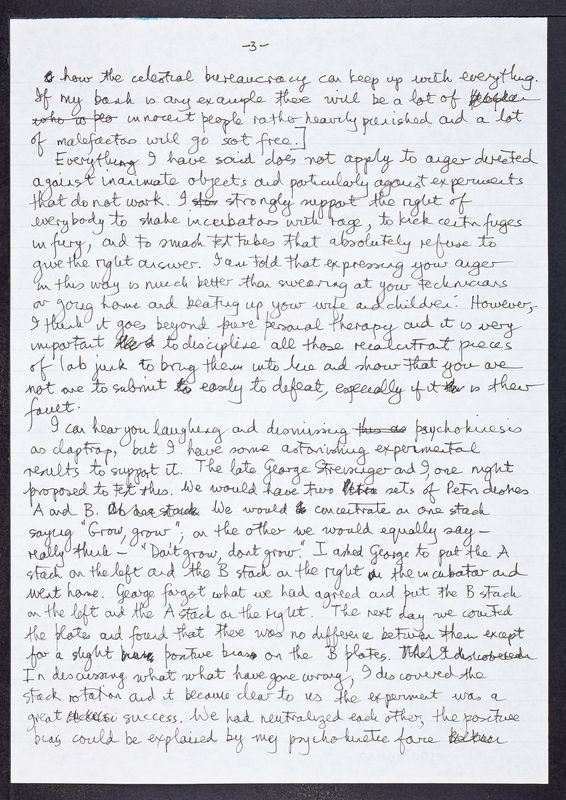 -3-
how the celestial bureaucracy can keep up with everything.
If my bank is any example there will be a lot of
innocent people rather heavily punished and a lot
of malefactors will go scot free.]
Everything I have said does not apply to anger directed
against inanimate objects and particularly against experiments
that do not work. I strongly support the right of
everybody to shake incubators with rage, to kick centrifuges
in fury, and to smash test tubes that absolutely refuse to
give the right answer. I am told that expressing your anger
in this way is much better than swearing at your technicians
or going home and beating up your wife and children. However,
I think it goes beyond pure personal therapy and it is very
important to discipline all those recalcitrant pieces
of lab junk to bring them into line and show that you are
not one to submit easily to defeat, especially if it is their
fault.
I can hear you laughing and dismissing this as psychokinesis
as claptrap, but I have some astonishing experimental
results to support it. The late George Streisinger and I, one night
proposed to test this. We would have two sets of Petri dishes
A and B. We would concentrate on one stack
saying "Grow, grow"; on the other we would equally say -
really think - "Don't grow, dont grow." I asked George to put the A
stack on the left and the B stack on the right in the incubator and
went home. George forgot what we had agreed and put the B stack
on the left and the A stack on the right. The next day we counted
the plates and found that there was no difference between them except
for a slight positive bias on the B plates.
In discussing what what have gone wrong, I discovered the
stack rotation and it became clear to us the experiment was a
great success. We had neutralized each other, the positive
bias could be explained by my psychokinetic force